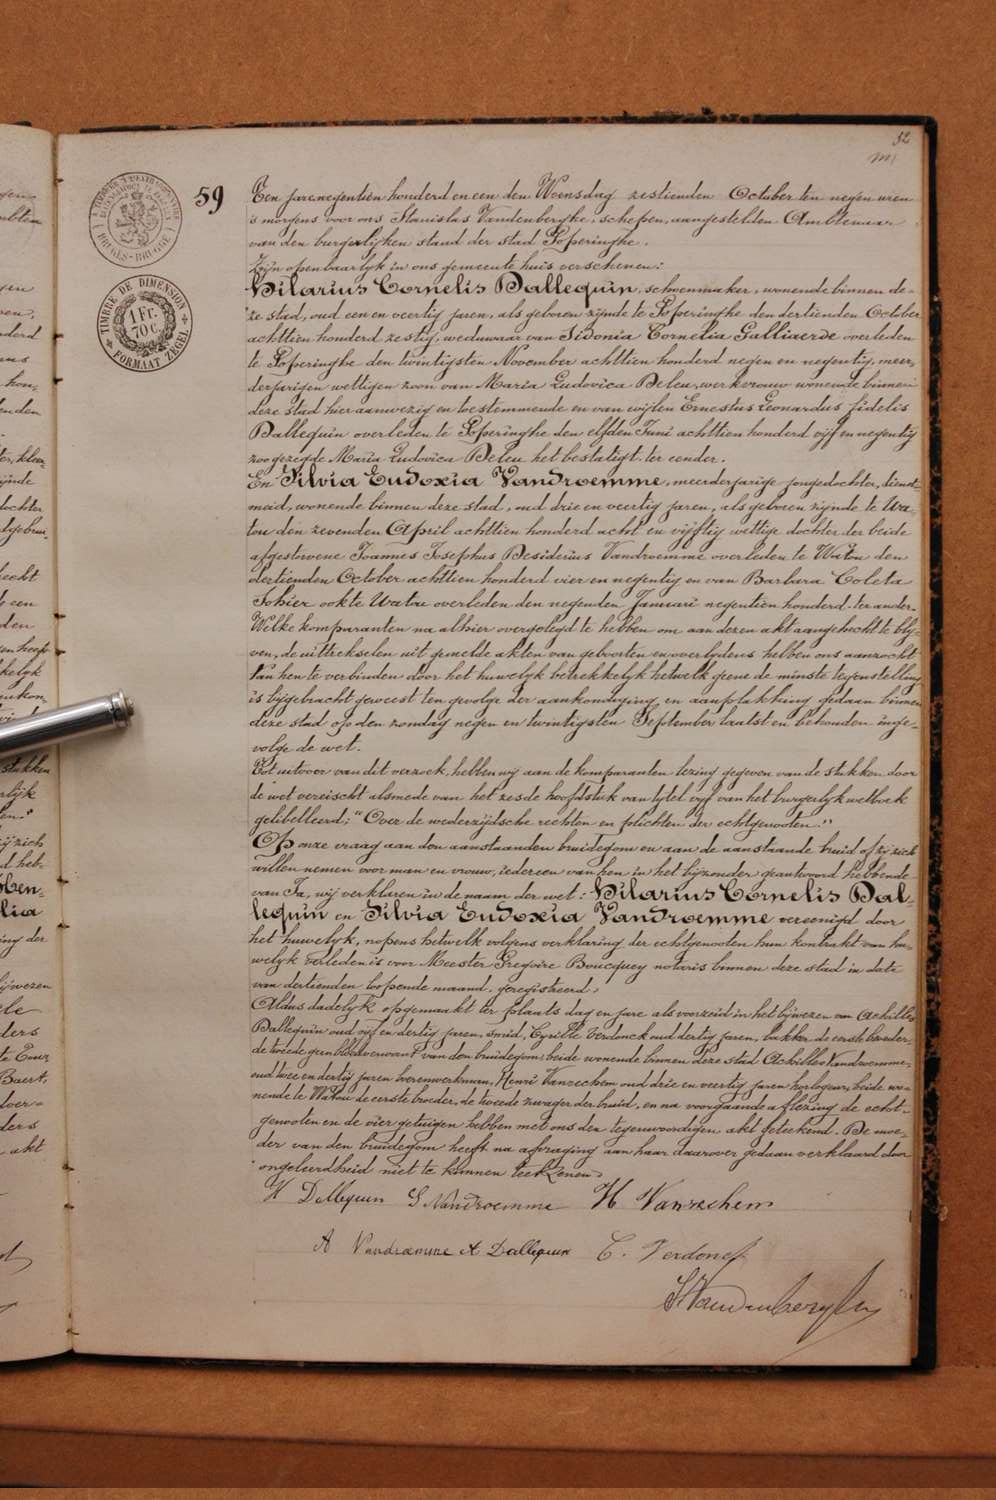 52
59
Een jare negentien honderd en een den Woensdag zestienden October ten negen uren
is morgens voor ons Stanislas Vandenberghe, schepen, aangestelden Ambtenaar
van den burgerlijken stand der stad Poperinghe.
Zijn openbaarlyk in ons gemeente huis verschenen:
Hilarius Cornelis Dallequin, schoenmaker, wonende binnen de-
ze stad, oud een en veertig jaren, als geboren zijnde te Poperinghe den dertienden October
achttien honderd zestig, weduwaar van Sidonia Cornelia Galliaerde overleden
te Poperinghe den twintigsten November achttien honderd negen en negentig, meer-
derjarigen wettigen zoon van Maria Ludovica Deleu, werkvrouw wonende binnen
deze stad hier aanwezig en toestemmende en van wijlen Ernestus Leonardus fidelis
Dallequin overleden te Poperinghe den elfden Juni achttien honderd vijf en negentig
zoo gezegde Maria Ludovica Deleu het bestatigt. ter eender.
En Silvia Eudoxia Vandroemme, meerderjarige jongedochter, dienst-
meid, wonende binnen deze stad, oud drie en veertig jaren, als geboren zijnde te Wa-
tou den zevenden April achttien honderd acht en vijftig wettige dochter der beide
afgestorvene Joannes Josephus Desiderius Vandroemme overleden te Watou den
dertienden October achttien honderd vier en negentig en van Barbara Coleta
Sohier ook te Watou overleden den negenden Januari negentien honderd. ter ander-
Welke komparanten na alhier overgelegd te hebben om aan dezen akt aangehecht te bly-
ven, de uittrekselen uit gemelde akten van geboorten en overlydens hebben ons aanzocht
van hen te verbinden door het huwelyk betrekkelyk hetwelk geene de minste tegenstelling
is bijgebracht geweest ten gevolge der aankondiging en aanplakking gedaan binnen
deze stad op den zondag negen en twintigsten September laatst en behouden inge-
volge de wet.
Tot uitvoer van dit verzoek, hebben wij aan de komparanten lezing gegeven van de stukken door
de wet vereischt alsmede van het zesde hoofdstuk van tytel vyf van het burgerlyk wetboek
getibelleerd: "Over de wederzijdsche rechten en plichten der echtgenooten."
Op onze vraag aan den aanstaanden bruidegom en aan de aanstaande bruid of zij zich
willen nemen voor man en vrouw, iedereen van hen in het bijzonder geantwoord hebbende
van Ja, wij verklaren in de naam der wet: Hilarius Cornelis Dal-
lequin en Silvia Eudoxia Vandroemme vereenigd door
het huwelyk, nopens hetwelk volgens verklaring der echtgenooten hun kontrakt van hu-
welyk verleden is voor Meester Gregoire Boucquey notaris binnen deze stad in date
van dertienden loopende maand, geregistreerd.
Aldus dadelyk opgemaakt ter plaats dag en jare als voorzeid in het bijwezen van Achilles
Dallequin oud vijf en dertig jaren, smid, Cyrille Verdonck oud dertig jaren, bakker de eerste broeder,
de tweede aanverwant van den bruidegom, beide wonende binnen deze stad Achilles Vandroemme,
oud twee en dertig jaren hovenwerkman, Henri Vanrechem oud drie en veertig jaren horlogeur, beide wo-
nende te Watou de eerste broeder, de tweede zwager der bruid, en na voorgaande aflezing de echt-
genooten en de vier getuigen hebben met ons den tegenwoordigen akt geteekend. De moe-
der van den bruidegom heeft na afvraging aan haar daarover gedaan verklaard door
ongeleerdheid niet te kunnen teekenen.
H Dallequin S Vandroemme H Vanrechem
A Vandroemme A Dallequin C. Verdonck
S. Vandenberghe